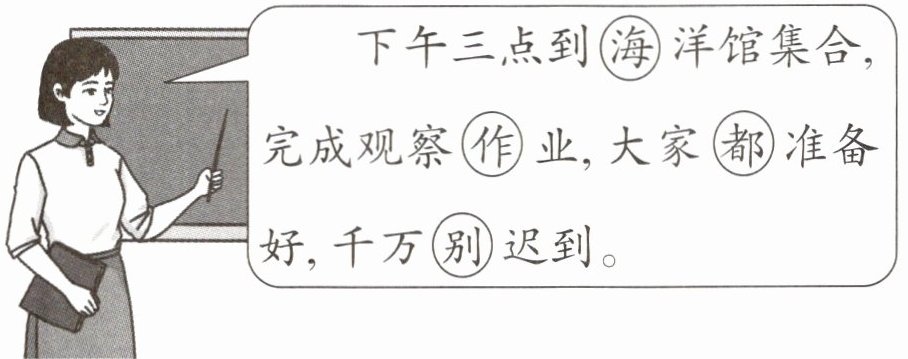 下午三点到海洋馆集合,
完成观察作业,大家都准备
好,千万别迟到。